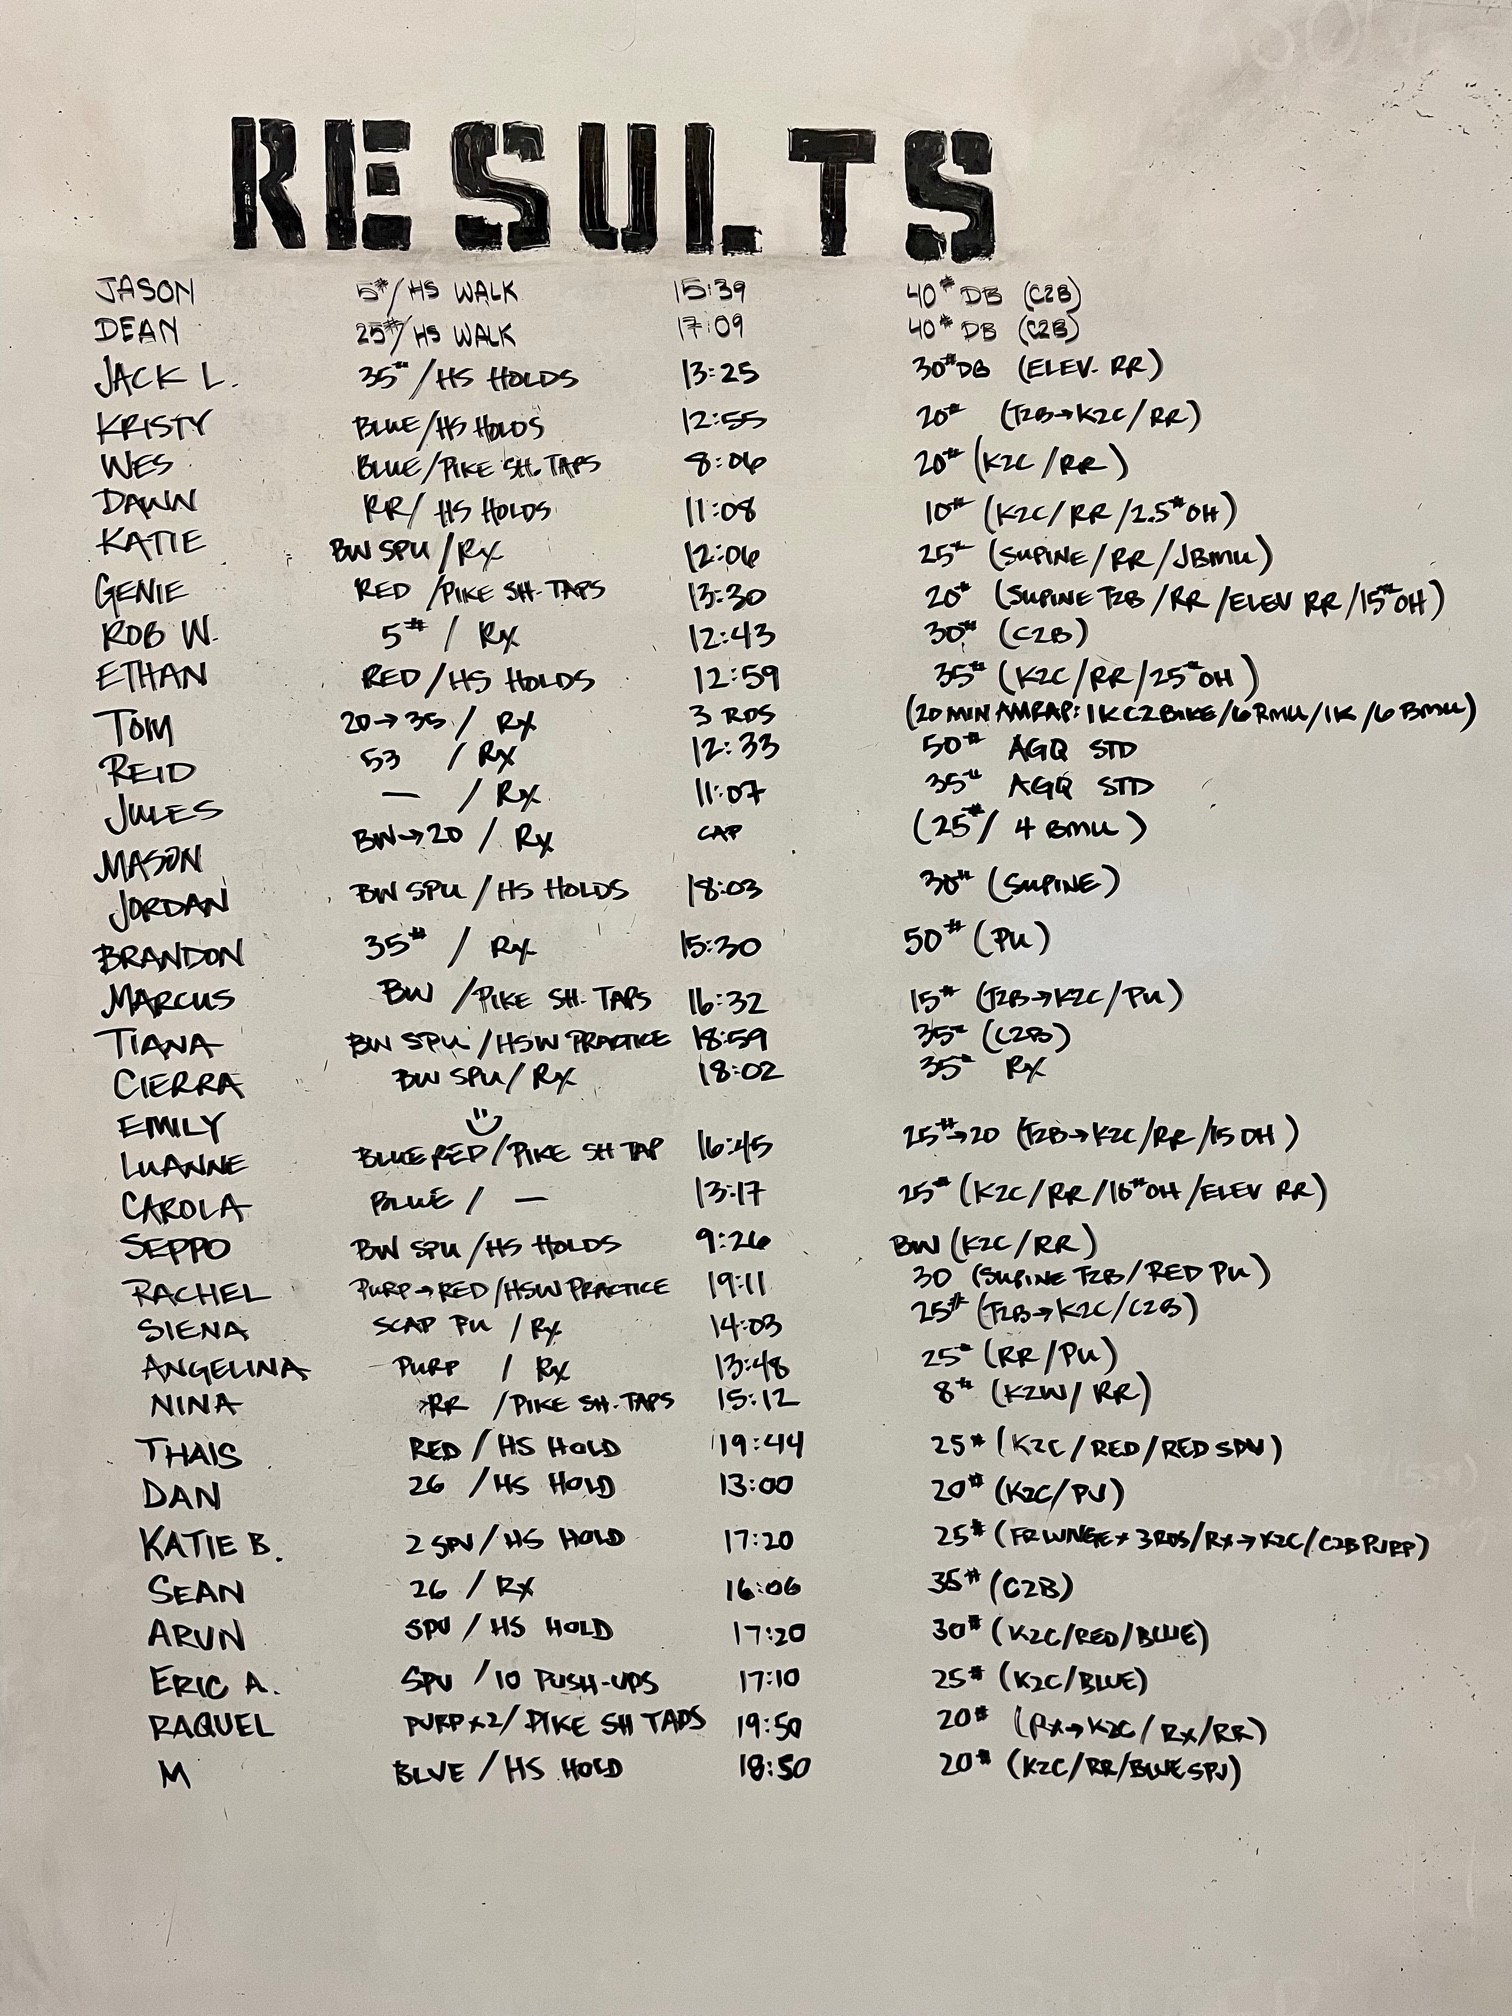 RESULTS
JASON 5#/HS WALK 15:39 40# DB (C2B)
DEAN 25#/HS WALK 17:09 40# DB (C2B)
JACK L. 35#/HS HOLDS 13:25 30# DB (ELEV. RR)
KRISTY BLUE/HS HOLDS 12:55 20# (T2B→K2C/RR)
WES BLUE/PIKE SH. TAPS 8:06 20# (K2C/RR)
DAWN RR/HS HOLDS 11:08 10# (K2C/RR/2.5# OH)
KATIE BW SPU/RX 12:06 25# (SUPINE/RR/JBMU)
GENIE RED/PIKE SH. TAPS 13:30 20# (SUPINE T2B/RR/ELEV RR/15# OH)
ROB W. 5# / RX 12:43 30# (C2B)
ETHAN RED/HS HOLDS 12:59 35# (K2C/RR/25# OH)
TOM 20→35 / RX 3 RDS (20 MIN AMRAP: 1K C2BIKE/6 RMU/1K/6 BMU)
REID 53 / RX 12:33 50# AGQ STD
JULES — / RX 11:07 35# AGQ STD
MASON BW→20 / RX CAP (25#/ 4 BMU)
JORDAN BW SPU/HS HOLDS 18:03 30# (SUPINE)
BRANDON 35# / RX 15:30 50# (PU)
MARCUS BW /PIKE SH. TAPS 16:32 15# (T2B→K2C/PU)
TIANA BW SPU/HSW PRACTICE 18:59 35# (C2B)
CIERRA BW SPU/RX 18:02 35# RX
EMILY
LUANNE BLUE RED/PIKE SH TAP 16:45 25#→20 (T2B→K2C/RR/15 OH)
CAROLA BLUE / — 13:17 25# (K2C/RR/10# OH/ELEV RR)
SEPPO BW SPU/HS HOLDS 9:26 BW (K2C/RR)
RACHEL PURP→RED/HSW PRACTICE 19:11 30 (SUPINE T2B/RED PU)
SIENA SCAP PU / RX 14:03 25# (T2B→K2C/C2B)
ANGELINA PURP / RX 13:48 25# (RR/PU)
NINA RR /PIKE SH. TAPS 15:12 8# (K2W/RR)
THAIS RED/HS HOLD 19:44 25# (K2C/RED/RED SPU)
DAN 26 /HS HOLD 13:00 20# (K2C/PU)
KATIE B. 2 SPU/HS HOLD 17:20 25# (FR LUNGE × 3RDS/RX→K2C/C2B PURP)
SEAN 26 / RX 16:06 35# (C2B)
ARUN SPU / HS HOLD 17:20 30# (K2C/RED/BLUE)
ERIC A. SPU /10 PUSH-UPS 17:10 25# (K2C/BLUE)
RAQUEL PURP x2/ PIKE SH TAPS 19:50 20# (RX→K2C/RX/RR)
M BLUE / HS HOLD 18:50 20# (K2C/RR/BLUE SPU)